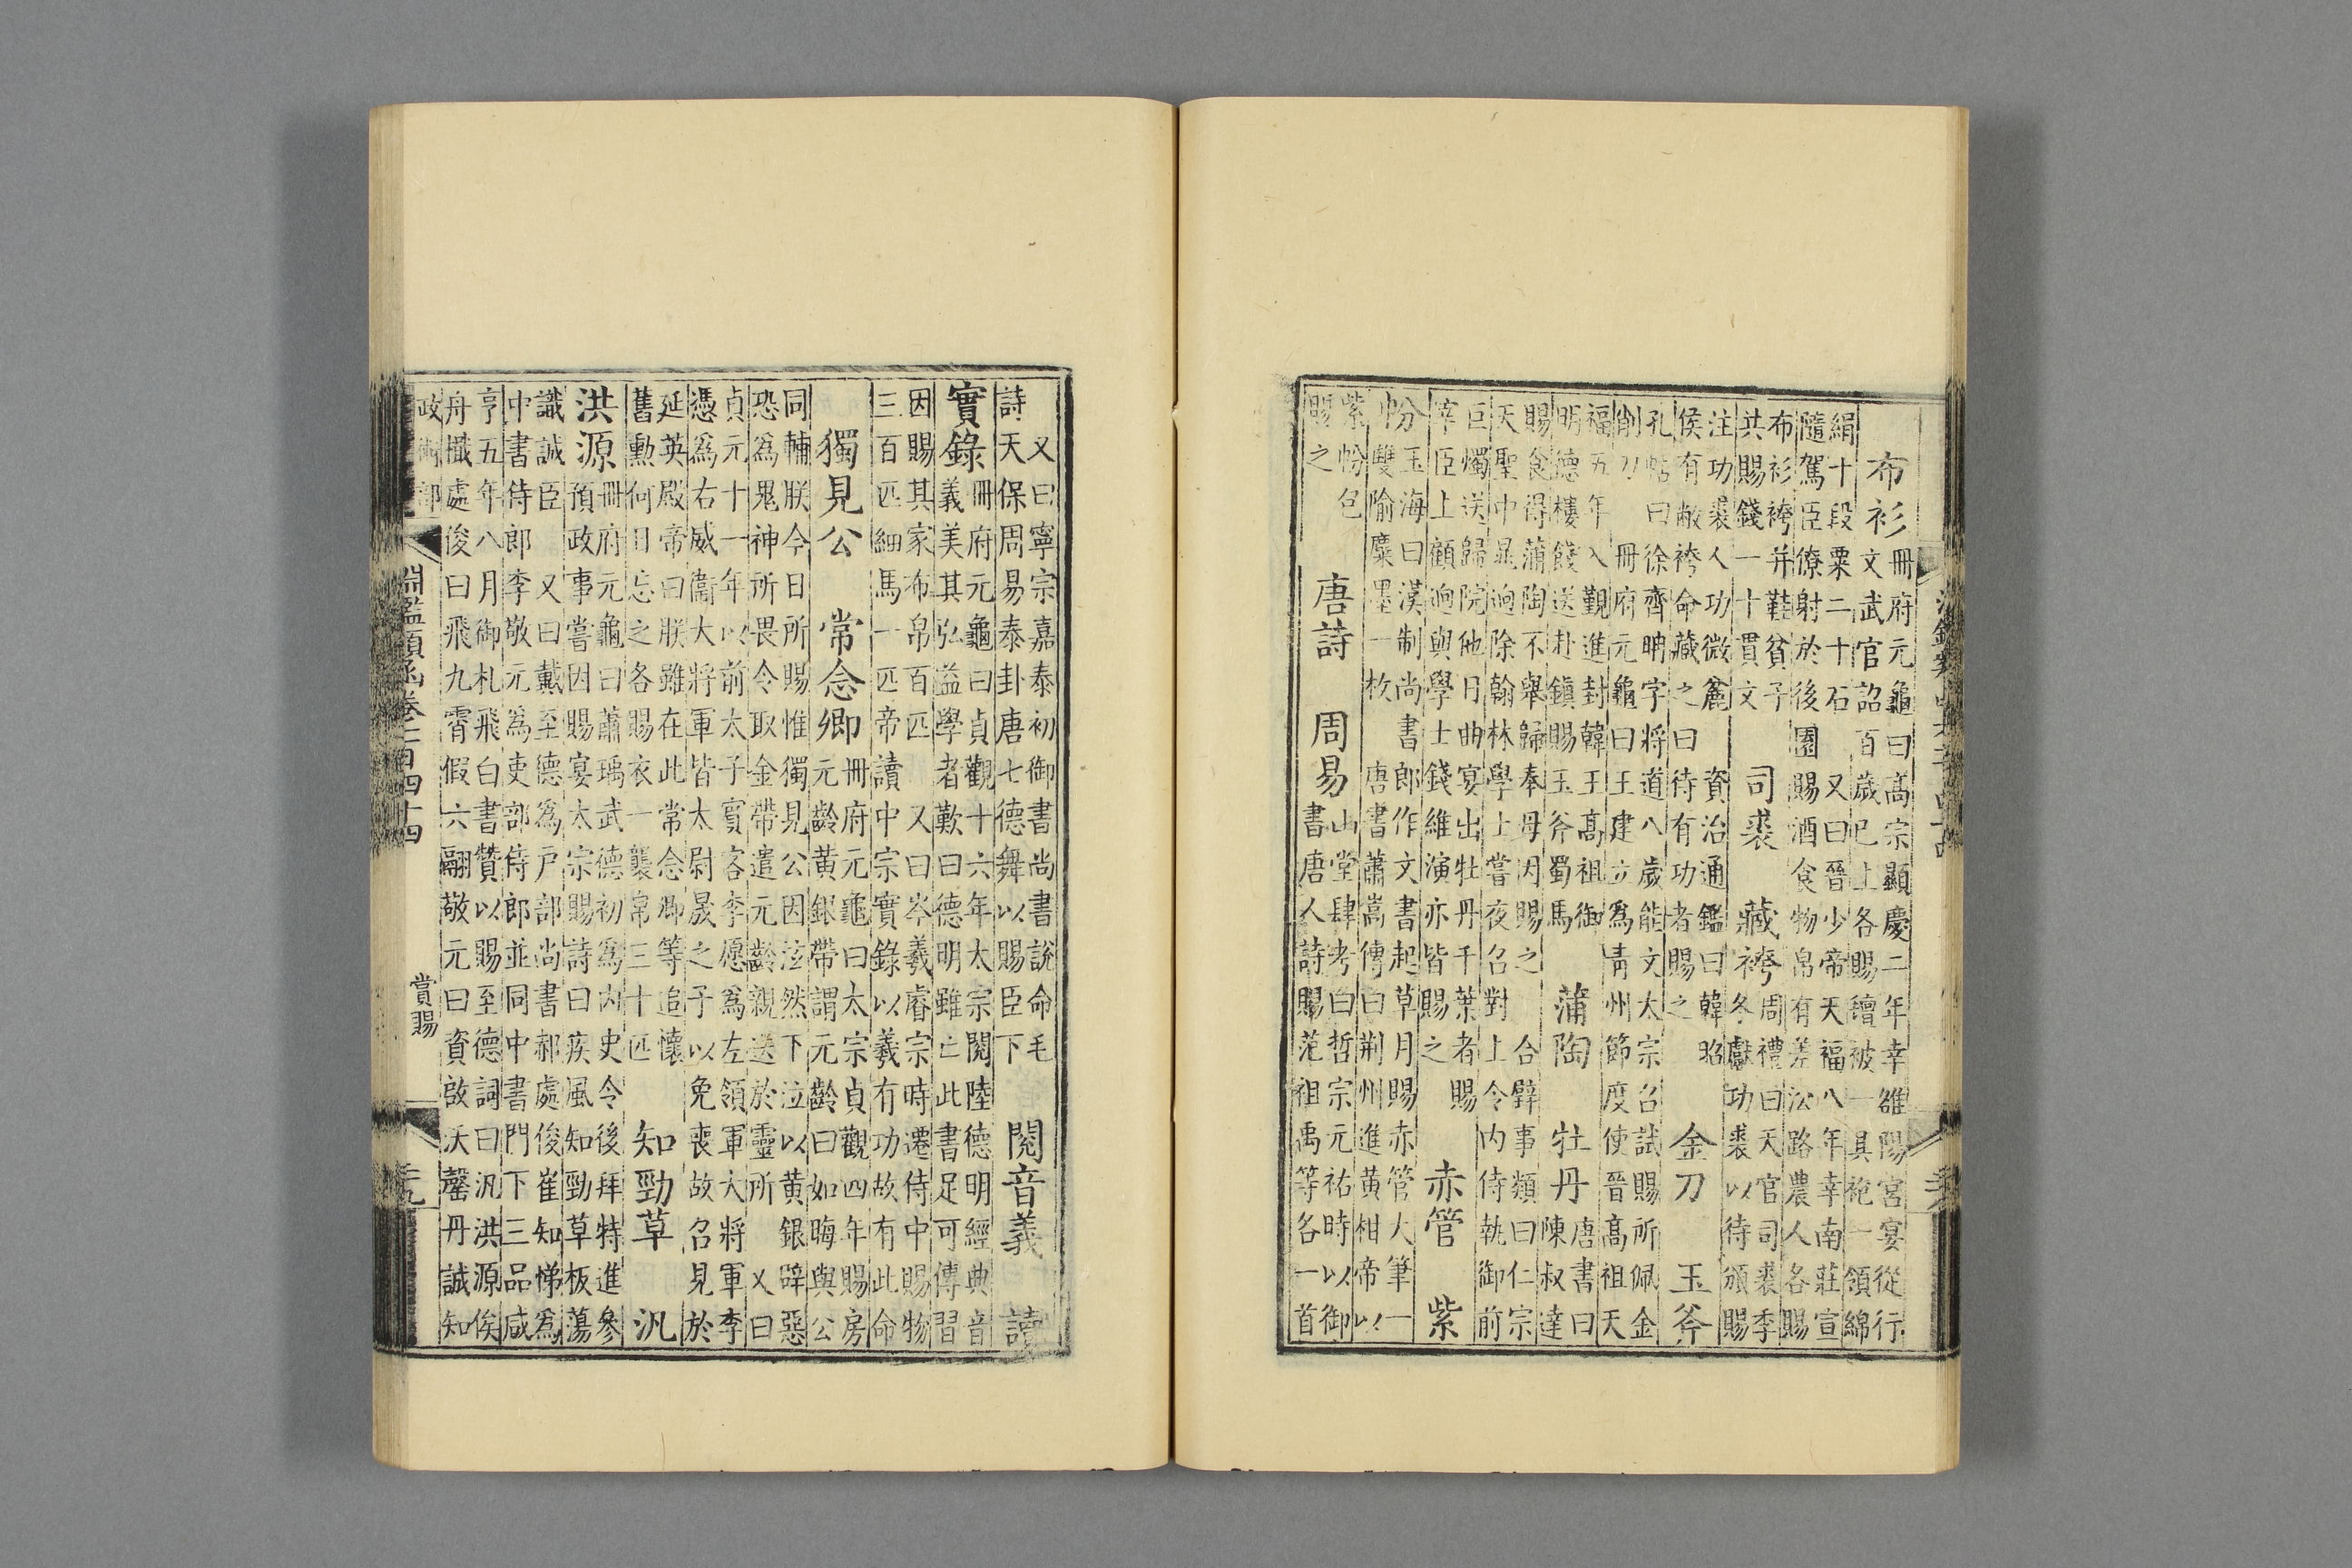 布衫
冊府元龜曰高宗顯慶二年幸雒陽宮宴從行
文武官詔百歲已上各賜繒被一具袍一領綿
絹十段粟二十石
又曰晉少帝天福八年幸南莊宣
隨駕臣僚射於後園賜酒食物帛有差沿路農人各賜
布衫袴并鞋貧子
共賜錢一十貫文
司裘 藏袴
周禮曰天官司裘季
冬獻功裘以待頒賜
注功裘人功微麄
資治通鑑曰韓昭
侯有敝袴命藏之曰待有功者賜之
金刀 玉斧
孔帖曰徐齊聃字將道八歲能文太宗召試賜所佩金
削刀 冊府元龜曰王建立為青州節度使晉高祖天
福五年入覲進封韓王高祖御
明德樓餞送赴鎮賜玉斧蜀馬
蒲陶 牡丹
唐書曰
陳叔達
賜食得蒲陶不舉歸奉母因賜之 合璧事類曰仁宗
天聖中晁迥除翰林學士嘗夜召對上令內侍執御前
巨燭送歸院他日曲宴出牡丹千葉者賜
宰臣上顧迥與學士錢維演亦皆賜之
赤管 紫
帉
玉海曰漢制尚書郎作文書起草月賜赤管大筆一
雙隃麋墨一枚 唐書蕭嵩傳曰荊州進黃柑帝以
紫帉包
賜之
唐詩 周易
山堂肆考曰哲宗元祐時以御
書唐人詩賜范祖禹等各一首
又曰寧宗嘉泰初御書尚書說命毛
詩天保周易泰卦唐七德舞以賜臣下
閱音義 讀
實錄
冊府元龜曰貞觀十六年太宗閱陸德明經典音
義美其弘益學者歎曰德明雖亡此書足可傳習
因賜其家布帛百匹 又曰岑羲睿宗時遷侍中賜物
三百匹細馬一匹帝讀中宗實錄以羲有功故有此命
獨見公 常念卿
冊府元龜曰太宗貞觀四年賜房
元齡黃銀帶謂元齡曰如晦與公
同輔朕今日所賜惟獨見公因泫然下泣以黃銀辟惡
恐為鬼神所畏令取金帶遣元齡親送於靈所 又曰
貞元十一年以前太子賓客李愿為左領軍大將軍李
憑為右威衞大將軍皆太尉晟之子以免喪故召見於
延英殿帝曰朕雖在此常念卿等追懷
舊勳何日忘之各賜衣一襲帛三十匹
知勁草 汎
洪源
冊府元龜曰蕭瑀武德初為內史令後拜特進參
預政事嘗因賜宴太宗賜詩曰疾風知勁草板蕩
識誠臣 又曰戴至德為戶部尚書郝處俊崔知悌為
中書侍郎李敬元為吏部侍郎並同中書門下三品咸
亨五年八月御札飛白書贊以賜至德詞曰汎洪源俟
舟檝處俊曰飛九霄假六翮敬元曰資啟沃罄丹誠知
政術部
淵鑑類函卷二百四十四
賞賜